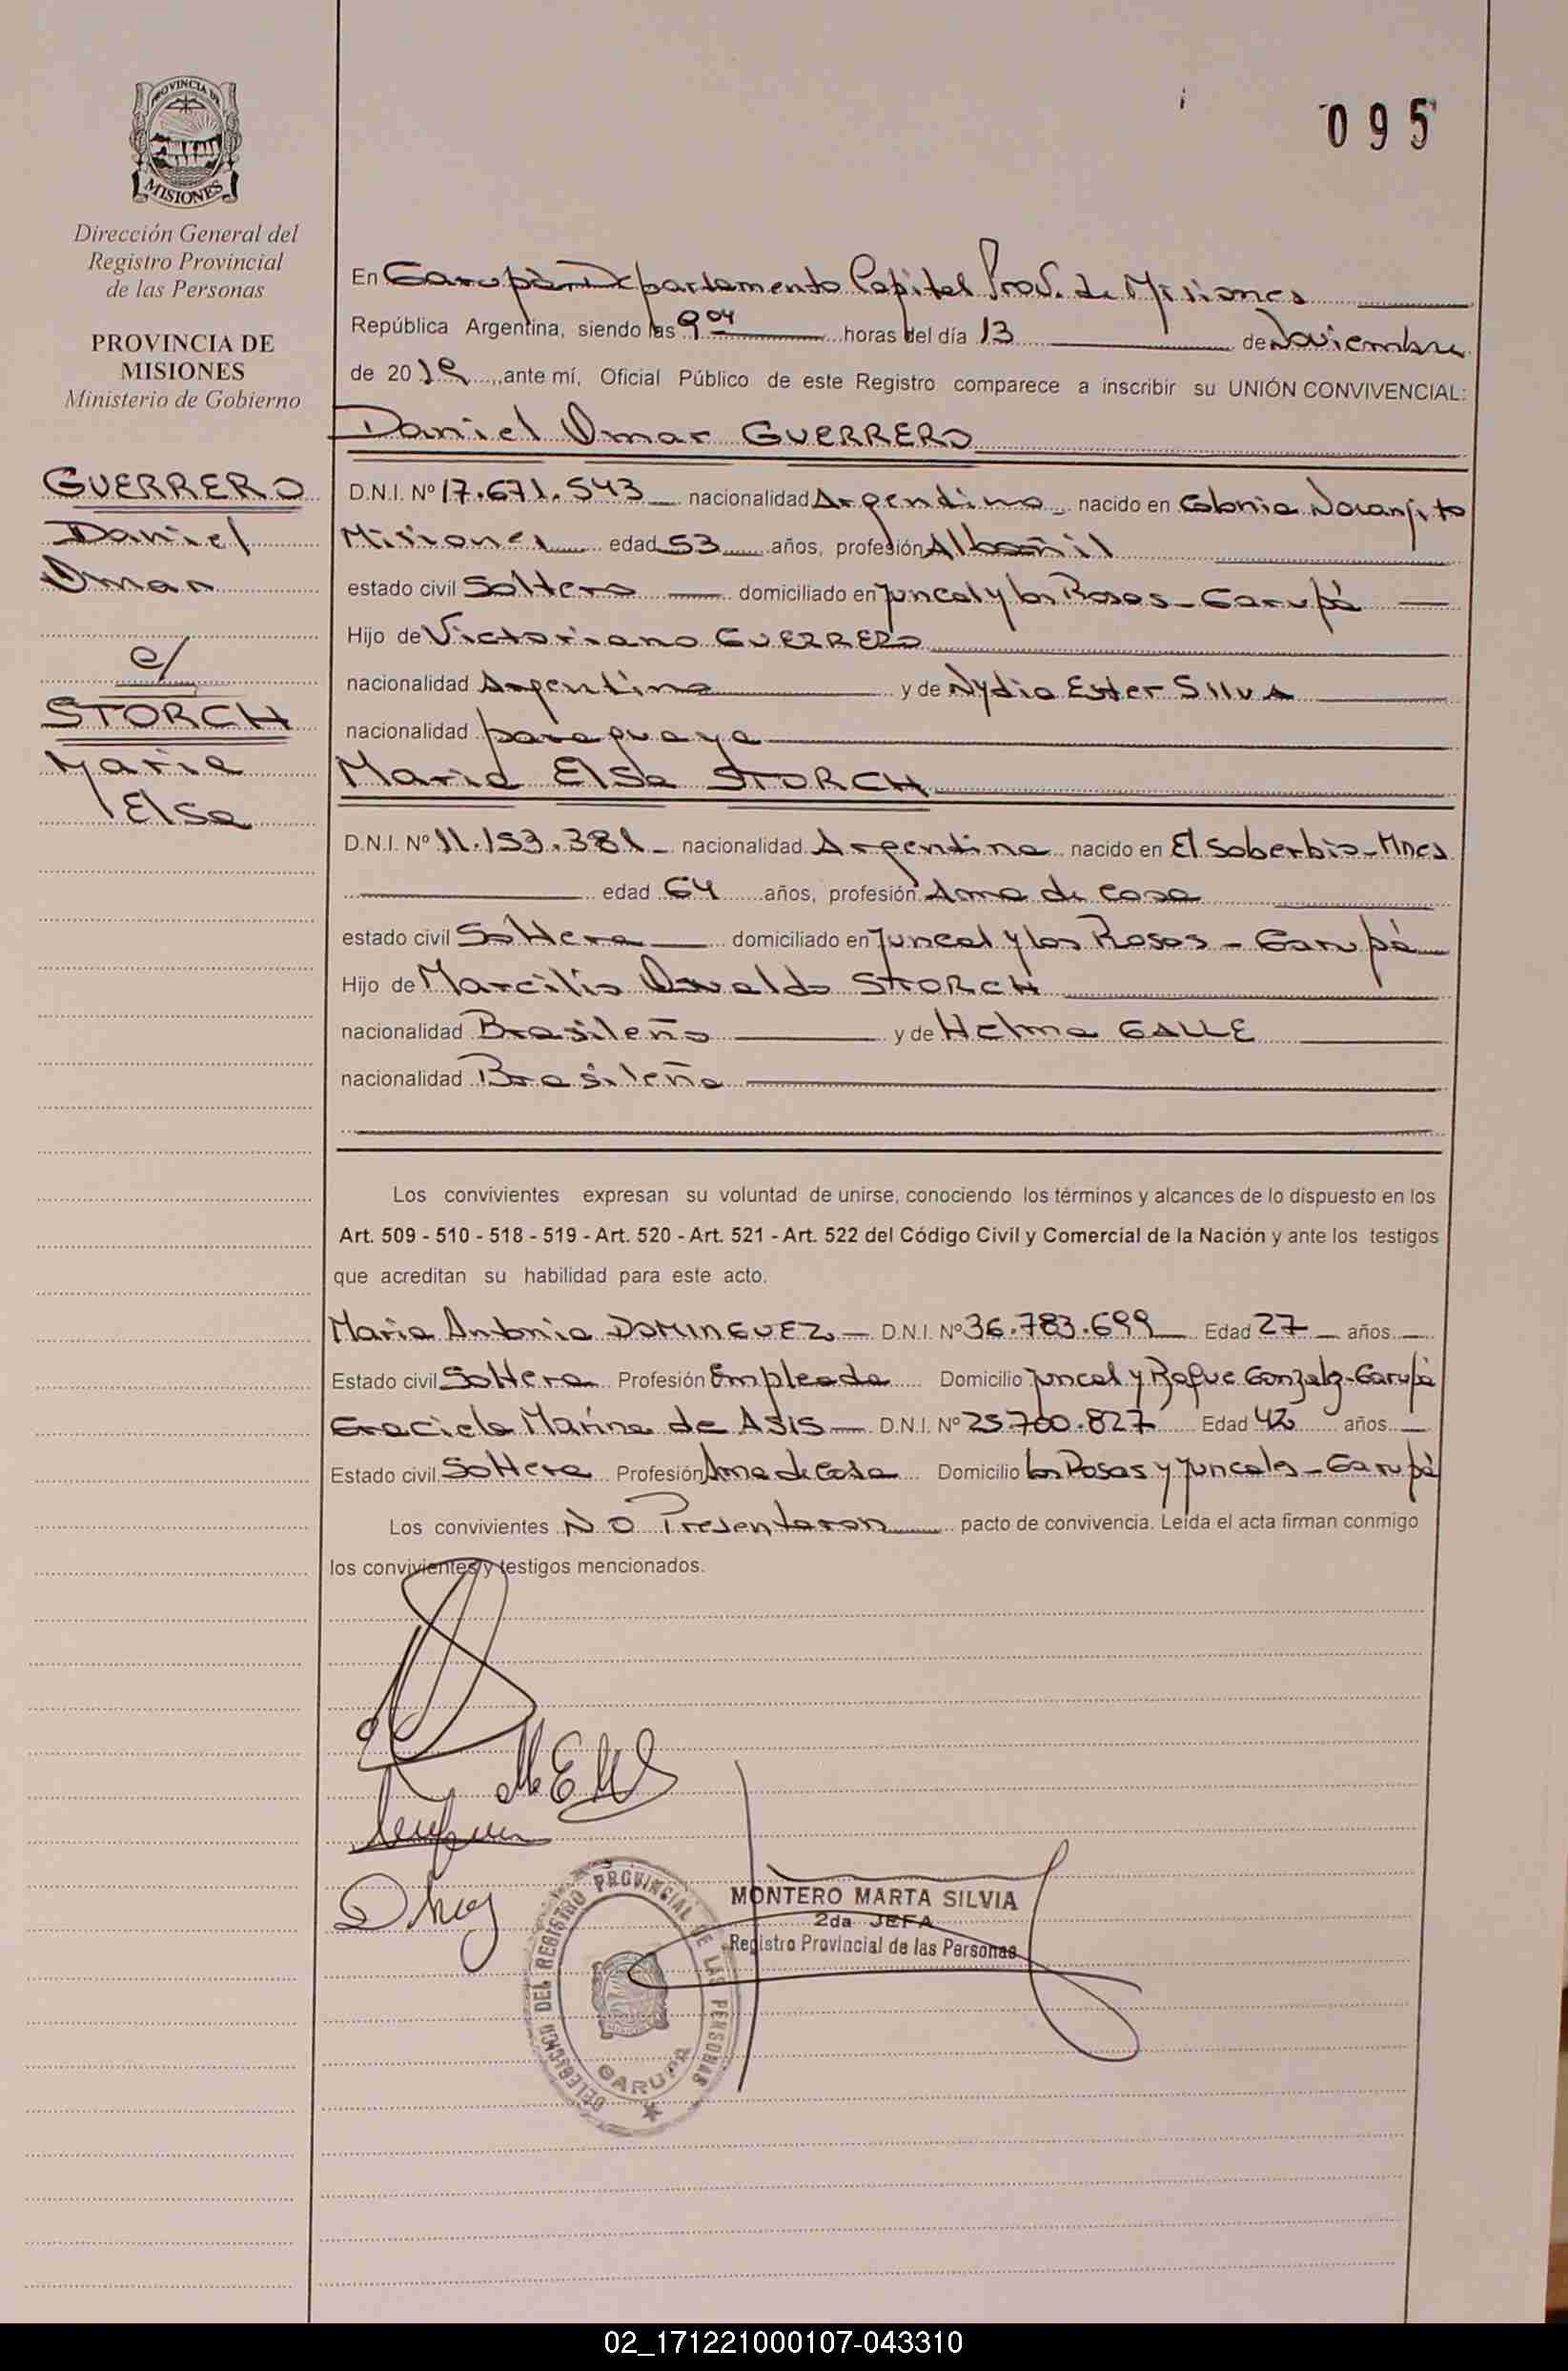 095
PROVINCIA DE
MISIONES
Dirección General del
Registro Provincial
de las Personas
PROVINCIA DE
MISIONES
Ministerio de Gobierno
GUERRERO
Daniel
Omar
c/
STORCH
Maria
Elsa
En Garupá Departamento Capital Prov. de Misiones
República Argentina, siendo las 9 04 horas del día 13 de Noviembre
de 2019, ante mí, Oficial Público de este Registro comparece a inscribir su UNIÓN CONVIVENCIAL:
Daniel Omar GUERRERO
D.N.I. Nº 17.671.543 nacionalidad Argentina nacido en Colonia Naranjito
Misiones edad 53 años, profesión Albañil
estado civil Soltero domiciliado en Juncal y los Rosas - Garupá
Hijo de Victoriano GUERRERO
nacionalidad Argentina y de Nydia Ester SILVA
nacionalidad paraguaya
Maria Elsa STORCH
D.N.I. Nº 11.153.381 nacionalidad Argentina nacido en El Soberbio - Mnes
edad 64 años, profesión Ama de casa
estado civil Soltera domiciliado en Juncal y los Rosas - Garupá
Hijo de Marcilio Osvaldo STORCH
nacionalidad Brasileño y de Helma GALLE
nacionalidad Brasileña
Los convivientes expresan su voluntad de unirse, conociendo los términos y alcances de lo dispuesto en los
Art. 509 - 510 - 518 - 519 - Art. 520 - Art. 521 - Art. 522 del Código Civil y Comercial de la Nación y ante los testigos
que acreditan su habilidad para este acto.
Maria Antonia DOMINGUEZ D.N.I. Nº 36.783.699 Edad 27 años
Estado civil Soltera Profesión Empleada Domicilio Juncal y Roque Gonzalez - Garupá
Graciela Marina de ASIS D.N.I. Nº 25.700.827 Edad 42 años
Estado civil Soltera Profesión Ama de Casa Domicilio los Rosas y Juncales - Garupá
Los convivientes NO Presentaron pacto de convivencia. Leída el acta firman conmigo
los convivientes y testigos mencionados.
MONTERO MARTA SILVIA
2da JEFA
Registro Provincial de las Personas
DELEGACION DEL REGISTRO PROVINCIAL DE LAS PERSONAS
GARUPA
02_171221000107-043310